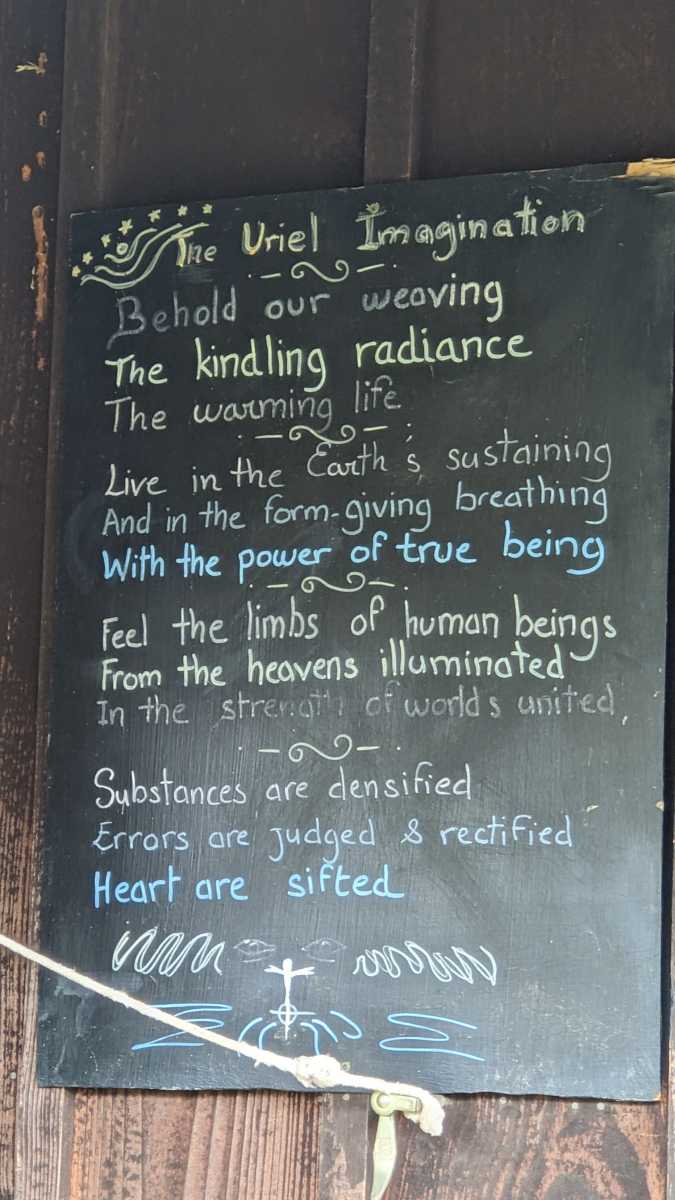 The Uriel Imagination
Behold our weaving
The kindling radiance
The warming life
Live in the Earth's sustaining
And in the form-giving breathing
With the power of true being
Feel the limbs of human beings
From the heavens illuminated
In the strength of worlds united,
Substances are densified
Errors are judged & rectified
Heart are sifted